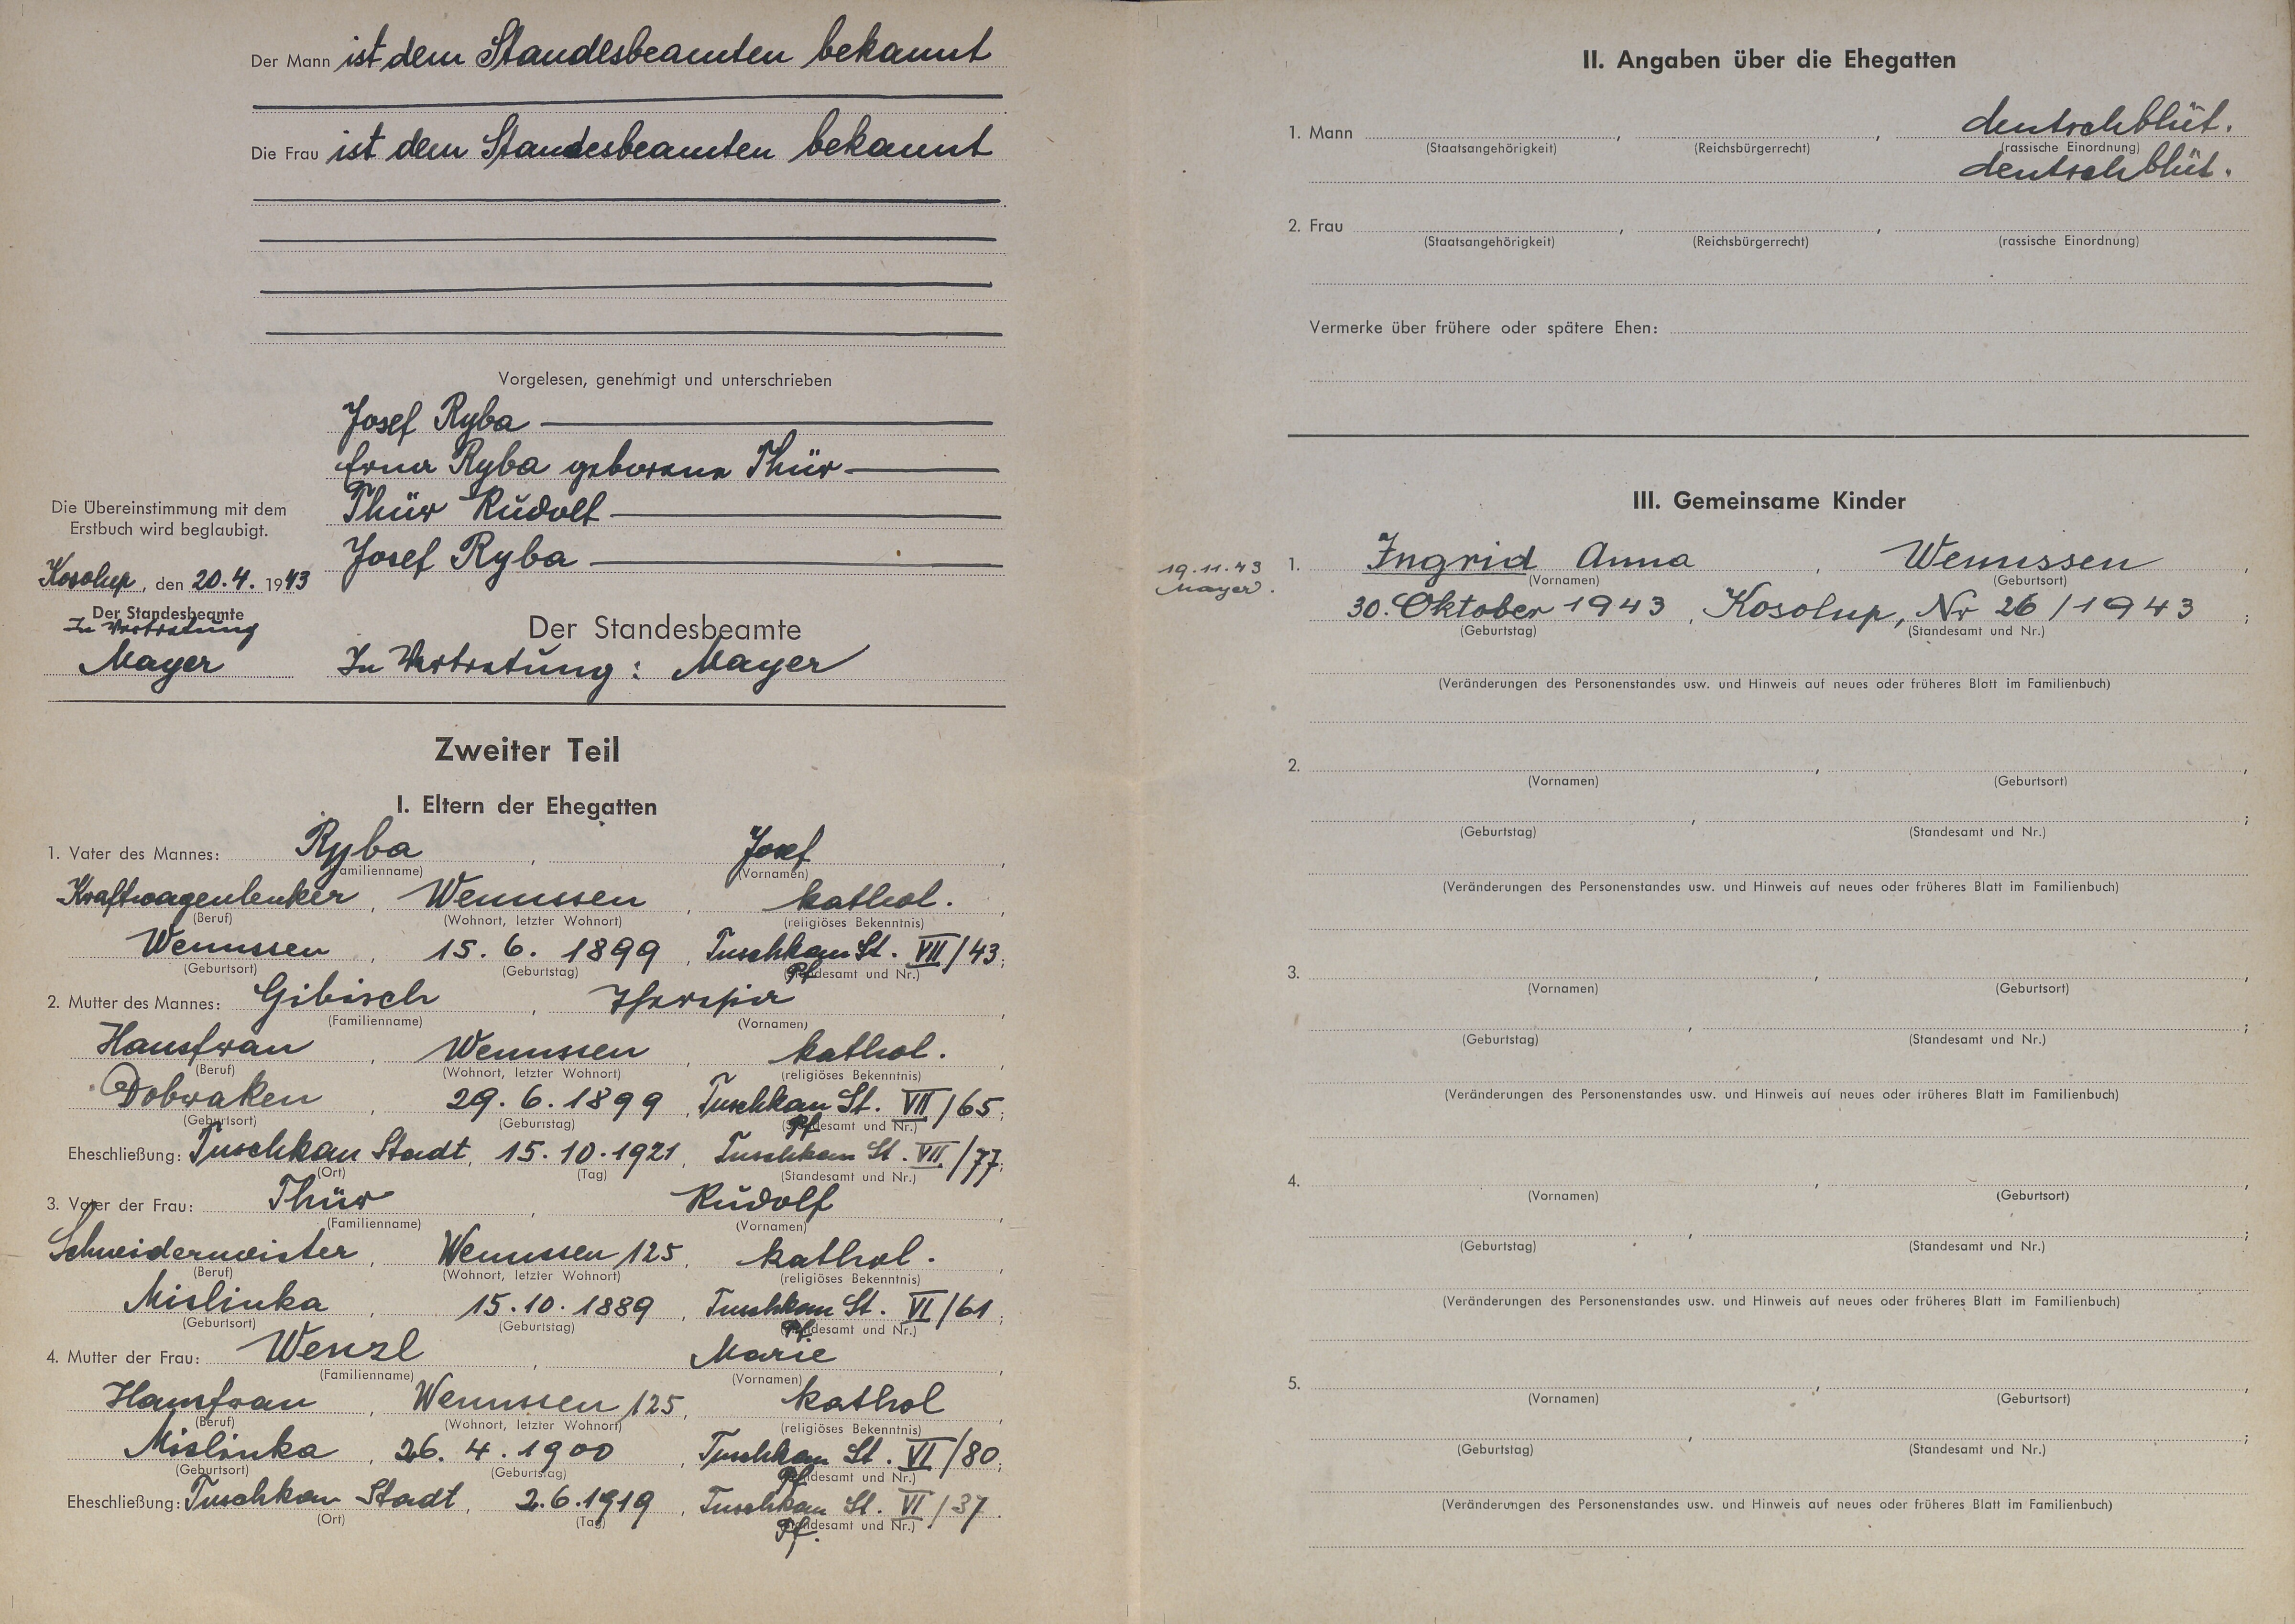 Der Mann ist dem Standesbeamten bekannt
Die Frau ist dem Standesbeamten bekannt
Vorgelesen, genehmigt und unterschrieben
Josef Ryba
Erna Ryba geborene Thür
Thür Rudolf
Josef Ryba
Die Übereinstimmung mit dem
Erstbuch wird beglaubigt.
Kosolup, den 20.4. 1943
Der Standesbeamte
In Vertretung
Mayer
Der Standesbeamte
In Vertretung: Mayer
Zweiter Teil
I. Eltern der Ehegatten
1. Vater des Mannes: Ryba, Josef,
(Familienname) (Vornamen)
Kraftwagenlenker, Wenussen, kathol.,
(Beruf) (Wohnort, letzter Wohnort) (religiöses Bekenntnis)
Wenussen, 15. 6. 1899, Tuschkau St. VII/43;
(Geburtsort) (Geburtstag) Pf. (Standesamt und Nr.)
2. Mutter des Mannes: Gibisch, Theresia,
(Familienname) (Vornamen)
Hausfrau, Wenussen, kathol.,
(Beruf) (Wohnort, letzter Wohnort) (religiöses Bekenntnis)
Dobraken, 29. 6. 1899, Tuschkau St. VII/65;
(Geburtsort) (Geburtstag) Pf. (Standesamt und Nr.)
Eheschließung: Tuschkau Stadt, 15. 10. 1921, Tuschkau St. VII/77;
(Ort) (Tag) (Standesamt und Nr.)
3. Vater der Frau: Thür, Rudolf,
(Familienname) (Vornamen)
Schneidermeister, Wenussen 125, kathol.,
(Beruf) (Wohnort, letzter Wohnort) (religiöses Bekenntnis)
Mislinka, 15. 10. 1889, Tuschkau St. VI/61;
(Geburtsort) (Geburtstag) Pf. (Standesamt und Nr.)
4. Mutter der Frau: Wenzl, Marie,
(Familienname) (Vornamen)
Hausfrau, Wenussen 125, kathol,
(Beruf) (Wohnort, letzter Wohnort) (religiöses Bekenntnis)
Mislinka, 26. 4. 1900, Tuschkau St. VI/80;
(Geburtsort) (Geburtstag) Pf. (Standesamt und Nr.)
Eheschließung: Tuschkau Stadt, 2. 6. 1919, Tuschkau St. VI/37.
(Ort) (Tag) Pf. (Standesamt und Nr.)
II. Angaben über die Ehegatten
1. Mann, , deutschblüt.
(Staatsangehörigkeit) (Reichsbürgerrecht) (rassische Einordnung)
deutschblüt.
2. Frau, ,
(Staatsangehörigkeit) (Reichsbürgerrecht) (rassische Einordnung)
Vermerke über frühere oder spätere Ehen:
III. Gemeinsame Kinder
19.11.43
Mayer.
1. Ingrid Anna, Wenussen,
(Vornamen) (Geburtsort)
30. Oktober 1943, Kosolup, Nr 26/1943;
(Geburtstag) (Standesamt und Nr.)
(Veränderungen des Personenstandes usw. und Hinweis auf neues oder früheres Blatt im Familienbuch)
2. , ,
(Vornamen) (Geburtsort)
, ;
(Geburtstag) (Standesamt und Nr.)
(Veränderungen des Personenstandes usw. und Hinweis auf neues oder früheres Blatt im Familienbuch)
3. , ,
(Vornamen) (Geburtsort)
, ;
(Geburtstag) (Standesamt und Nr.)
(Veränderungen des Personenstandes usw. und Hinweis auf neues oder früheres Blatt im Familienbuch)
4. , ,
(Vornamen) (Geburtsort)
, ;
(Geburtstag) (Standesamt und Nr.)
(Veränderungen des Personenstandes usw. und Hinweis auf neues oder früheres Blatt im Familienbuch)
5. , ,
(Vornamen) (Geburtsort)
, ;
(Geburtstag) (Standesamt und Nr.)
(Veränderungen des Personenstandes usw. und Hinweis auf neues oder früheres Blatt im Familienbuch)